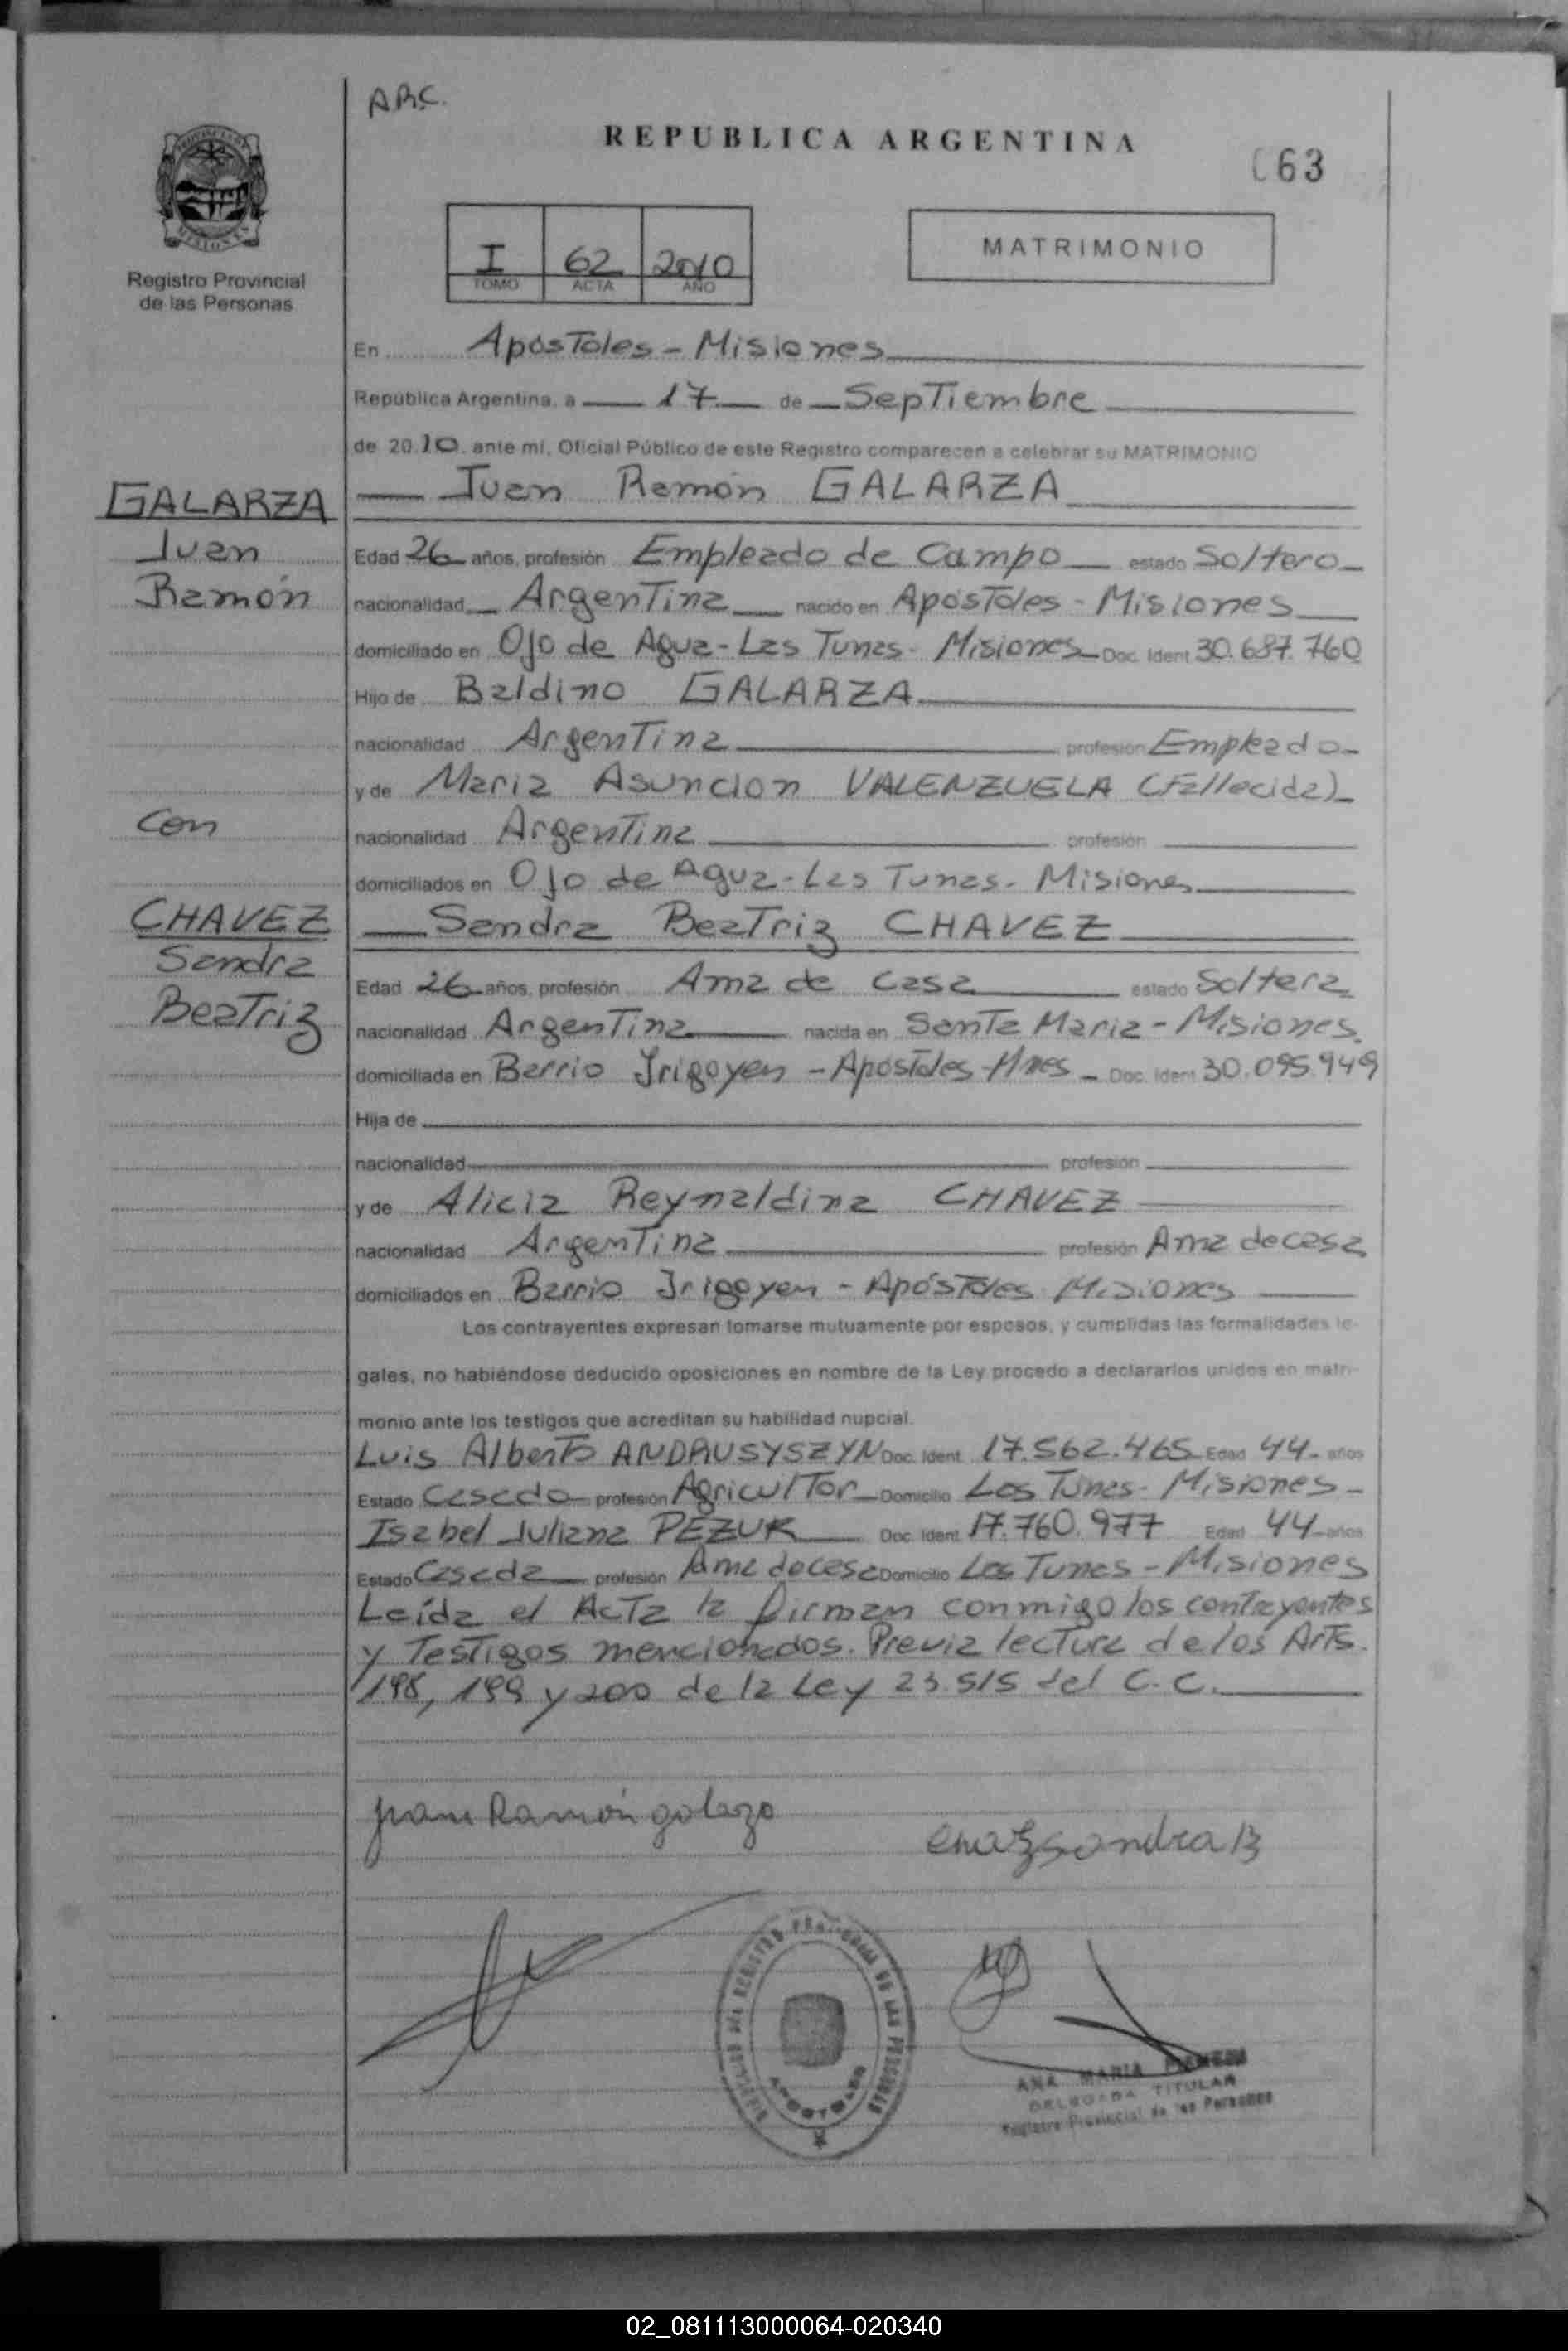 ARC.
REPUBLICA ARGENTINA
63
PROVINCIA DE MISIONES
Registro Provincial
de las Personas
I 62 2010
TOMO ACTA AÑO
MATRIMONIO
En Apóstoles - Misiones
República Argentina, a 17 de Septiembre
de 2010. ante mi, Oficial Público de este Registro comparecen a celebrar su MATRIMONIO
GALARZA
Juan
Ramón
con
CHAVEZ
Sandra
Beatriz
Juan Ramón GALARZA
Edad 26 años, profesión Empleado de Campo estado Soltero
nacionalidad Argentina nacido en Apóstoles - Misiones
domiciliado en Ojo de Agua - Las Tunas - Misiones Doc. Ident 30.687.760
Hijo de Baldino GALARZA
nacionalidad Argentina profesión Empleado
y de Maria Asuncion VALENZUELA (Fallecida)
nacionalidad Argentina profesión
domiciliados en Ojo de Agua - Las Tunas - Misiones
Sandra Beatriz CHAVEZ
Edad 26 años, profesión Ama de Casa estado Soltera
nacionalidad Argentina nacida en Santa Maria - Misiones.
domiciliada en Barrio Irigoyen - Apóstoles - Mnes Doc. Ident 30.095.949
Hija de
nacionalidad profesión
y de Alicia Reynaldina CHAVEZ
nacionalidad Argentina profesión Ama de casa
domiciliados en Barrio Irigoyen - Apóstoles Misiones
Los contrayentes expresan tomarse mutuamente por esposos, y cumplidas las formalidades le-
gales, no habiéndose deducido oposiciones en nombre de la Ley procedo a declararlos unidos en matri-
monio ante los testigos que acreditan su habilidad nupcial.
Luis Alberto ANDRUSYSZYN Doc. Ident. 17.562.465 Edad 44 años
Estado Casado profesión Agricultor Domicilio Las Tunas - Misiones
Isabel Juliana PEZUR Doc. Ident. 17.760.977 Edad 44 años
Estado Casada profesión Ama de casa Domicilio Las Tunas - Misiones
Leída el Acta la firman conmigo los contrayentes
y Testigos mencionados. Previa lectura de los Arts.
198, 199 y 200 de la Ley 23.515 del C.C.
Juan Ramón galarza
chavez sandra B
APOSTOLES
ANA MARIA
DELEGADA TITULAR
Registro Provincial de las Personas
02_081113000064-020340